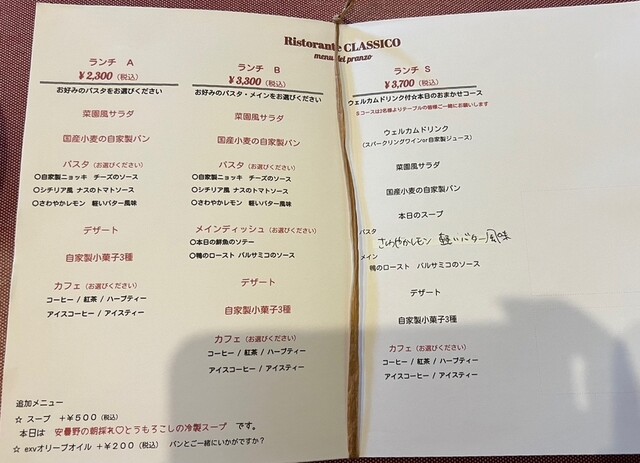 Ristorante CLASSICO
menu del pranzo
ランチ A
¥2,300（税込）
お好みのパスタをお選びください
菜園風サラダ
国産小麦の自家製パン
パスタ（お選びください）
○自家製ニョッキ チーズのソース
○シチリア風 ナスのトマトソース
○さわやかレモン 軽いバター風味
デザート
自家製小菓子3種
カフェ（お選びください）
コーヒー / 紅茶 / ハーブティー
アイスコーヒー / アイスティー
ランチ B
¥3,300（税込）
お好みのパスタ・メインをお選びください
菜園風サラダ
国産小麦の自家製パン
パスタ（お選びください）
○自家製ニョッキ チーズのソース
○シチリア風 ナスのトマトソース
○さわやかレモン 軽いバター風味
メインディッシュ（お選びください）
○本日の鮮魚のソテー
○鴨のロースト バルサミコのソース
デザート
自家製小菓子3種
カフェ（お選びください）
コーヒー / 紅茶 / ハーブティー
アイスコーヒー / アイスティー
ランチ S
¥3,700（税込）
ウェルカムドリンク付☆本日のおまかせコース
Sコースは2名様よりテーブルの皆様ご一緒にお願いします
ウェルカムドリンク
（スパークリングワインor自家製ジュース）
菜園風サラダ
国産小麦の自家製パン
本日のスープ
パスタ
さわやかレモン 軽いバター風味
メイン
鴨のロースト バルサミコのソース
デザート
自家製小菓子3種
カフェ（お選びください）
コーヒー / 紅茶 / ハーブティー
アイスコーヒー / アイスティー
追加メニュー
☆ スープ ＋¥500（税込）
本日は 安曇野の朝採れ♡とうもろこしの冷製スープ です。
☆ exvオリーブオイル ＋¥200（税込） パンとご一緒にいかがですか？